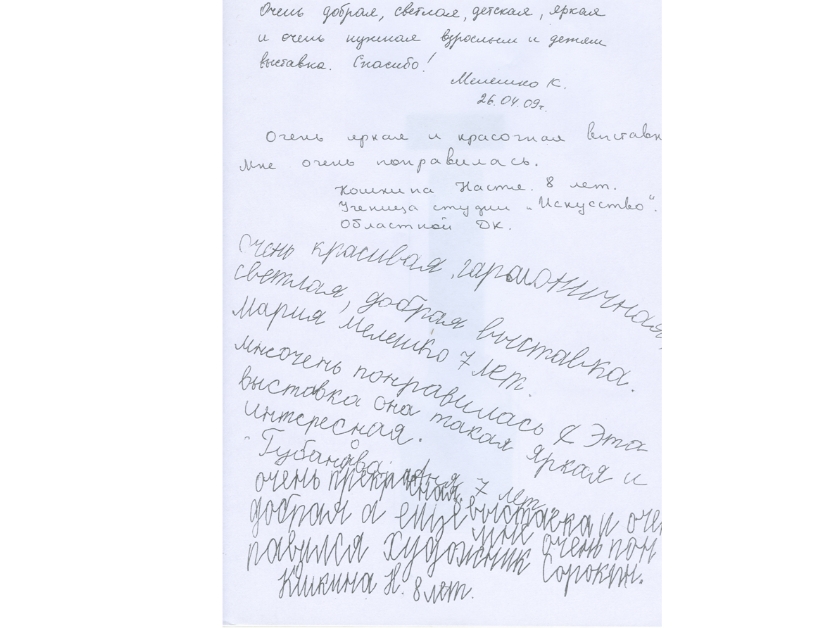 Очень добрая, светлая, детская, яркая
и очень нужная взрослым и детям
выставка. Спасибо!
Мелешко К.
26.04.09г.
Очень яркая и красочная выставк
Мне очень понравилась.
Кошкина Настя. 8 лет.
Ученица студии „Искусство".
Областной ДК.
Очень красивая, гармоничная,
светлая, добрая выставка.
Мария Мелешко 7 лет.
мне очень понравилась Эта
выставка она такая яркая и
интересная.
Губанова 7 лет
очень прекрасная выставка и оче
добрая а ещё мне очень пон
равился художник Сорокин.
Н. 8 лет.